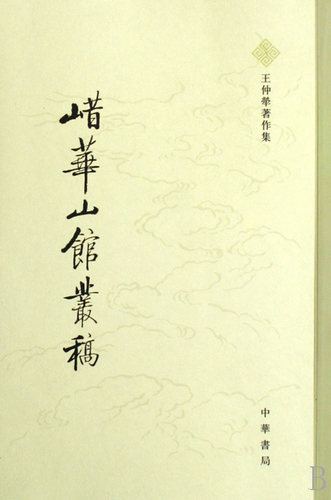 王仲犖著作集
㟙華山館叢稿
中華書局
B